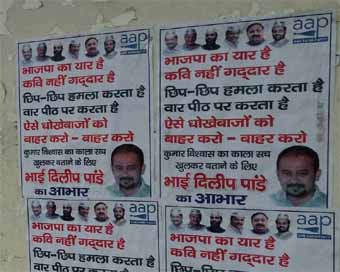 aap
भाजपा का यार है
कवि नहीं गद्दार है
छिप-छिप हमला करता है
वार पीठ पर करता है
ऐसे धोखेबाजों को
बाहर करो - बाहर करो
कुमार विश्वास का काला सच
खुलकर बताने के लिए
भाई दिलीप पांडे
का आभार
aap
भाजपा का यार है
कवि नहीं गद्दार है
छिप-छिप हमला करता है
वार पीठ पर करता है
ऐसे धोखेबाजों को
बाहर करो - बाहर करो
कुमार विश्वास का काला सच
खुलकर बताने के लिए
भाई दिलीप पांडे
का आभार
aap
भाजपा का यार है
कवि नहीं गद्दार है
छिप-छिप हमला करता है
aap
भाजपा का यार है
कवि नहीं गद्दार है
छिप-छिप हमला करता है